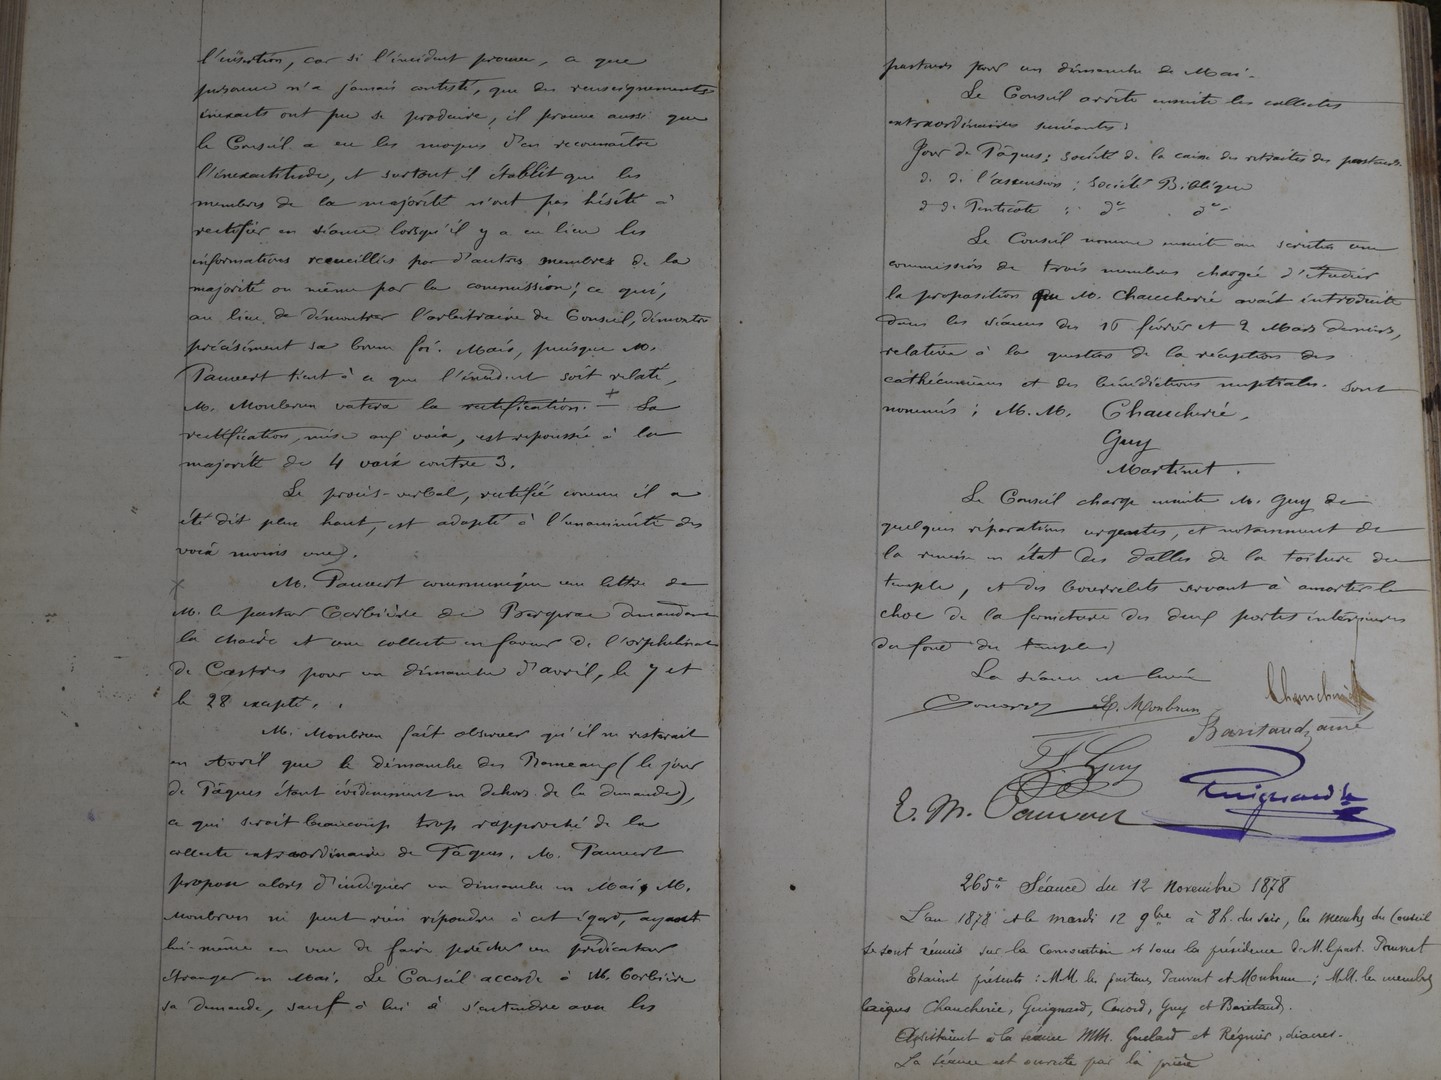 l'insertion, car si l'incident prouve, ce que
personne n'a jamais contesté, que des renseignements
inexacts ont pu se produire, il prouve aussi que
le Conseil a eu les moyens d'en reconnaître
l'inexactitude, et surtout il établit que les
membres de la majorité n'ont pas hésité à
rectifier en séance lorsqu'il y a eu lieu les
informations recueillies par d'autres membres de la
majorité ou même par la commission; ce qui,
au lieu de démontrer l'arbitraire du Conseil, démontre
précisément sa bonne foi. Mais, puisque M.
Pauvert tient à ce que l'incident soit relaté,
M. Monbrun votera la rectification. — La
rectification, mise aux voix, est repoussée à la
majorité de 4 voix contre 3.
Le procès-verbal, rectifié comme il a
été dit plus haut, est adopté à l'unanimité des
voix moins une.
M. Pauvert communique une lettre de
M. le pasteur Corbière de Bergerac demandant
la chaire et une collecte en faveur de l'orphelinat
de Castres pour un dimanche d'avril, le 7 et
le 28 excepté.
M. Monbrun fait observer qu'il ne resterait
en Avril que le dimanche des Rameaux (le jour
de Pâques étant évidemment en dehors de la demande),
ce qui serait beaucoup trop rapproché de la
collecte extraordinaire de Pâques. M. Pauvert
propose alors d'indiquer un dimanche en Mai, M.
Monbrun ne peut rien répondre à cet égard, ayant
lui-même en vue de faire prêcher un prédicateur
étranger en Mai. Le Conseil accorde à M. Corbière
sa demande, sauf à lui à s'entendre avec les
pasteurs pour un dimanche de Mai.
Le Conseil arrête ensuite les collectes
extraordinaires suivantes:
Jour de Pâques: Société de la caisse des retraites des pasteurs.
d. de l'ascension: Société Biblique
d. de Pentecôte: do do
Le Conseil nomme ensuite au scrutin une
commission de trois membres chargée d'étudier
la proposition que M. Chaucherie avait introduite
dans les séances des 15 février et 2 Mars derniers,
relative à la question de la réception des
cathécumènes et des bénédictions nuptiales. Sont
nommés: M.M. Chaucherie,
Guy
Martinet.
Le Conseil charge ensuite M. Guy de
quelques réparations urgentes, et notamment de
la remise en état des dalles de la toiture du
temple, et des bourrelets servant à amortir le
choc de la fermeture des deux portes intérieures
du fond du temple.
La séance est levée
E. Monbrun Chaucherie
Baritaud aîné
F. Guy
Guignard
E. M. Pauvert
265e Séance du 12 Novembre 1878
L'an 1878 et le mardi 12 9bre à 8h. du soir, les membres du Conseil
se sont réunis sur la Convocation et sous la présidence de M. le past. Pauvert
Etaient présents: MM. les pasteurs Pauvert et Monbrun; MM. les membres
laïques Chaucherie, Guignard, Conord, Guy et Baritaud.
Assistaient à la séance MM. et Régnier, diacres.
La séance est ouverte par la prière